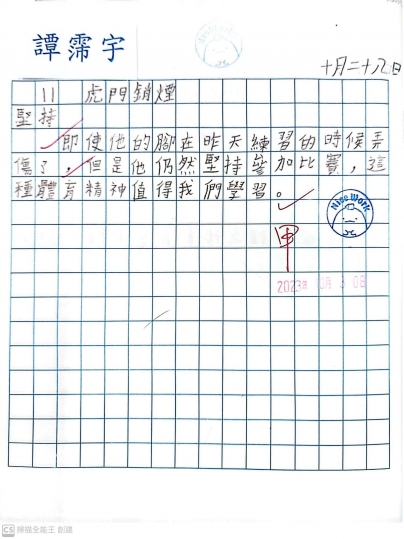 譚霈宇
十月二十八日
11 虎門銷煙
堅持
即使他的腳在昨天練習的時候弄
傷了,但是他仍然堅持參加比賽,這
種體育精神值得我們學習。
Nice Work
甲
CS 掃描全能王 創建